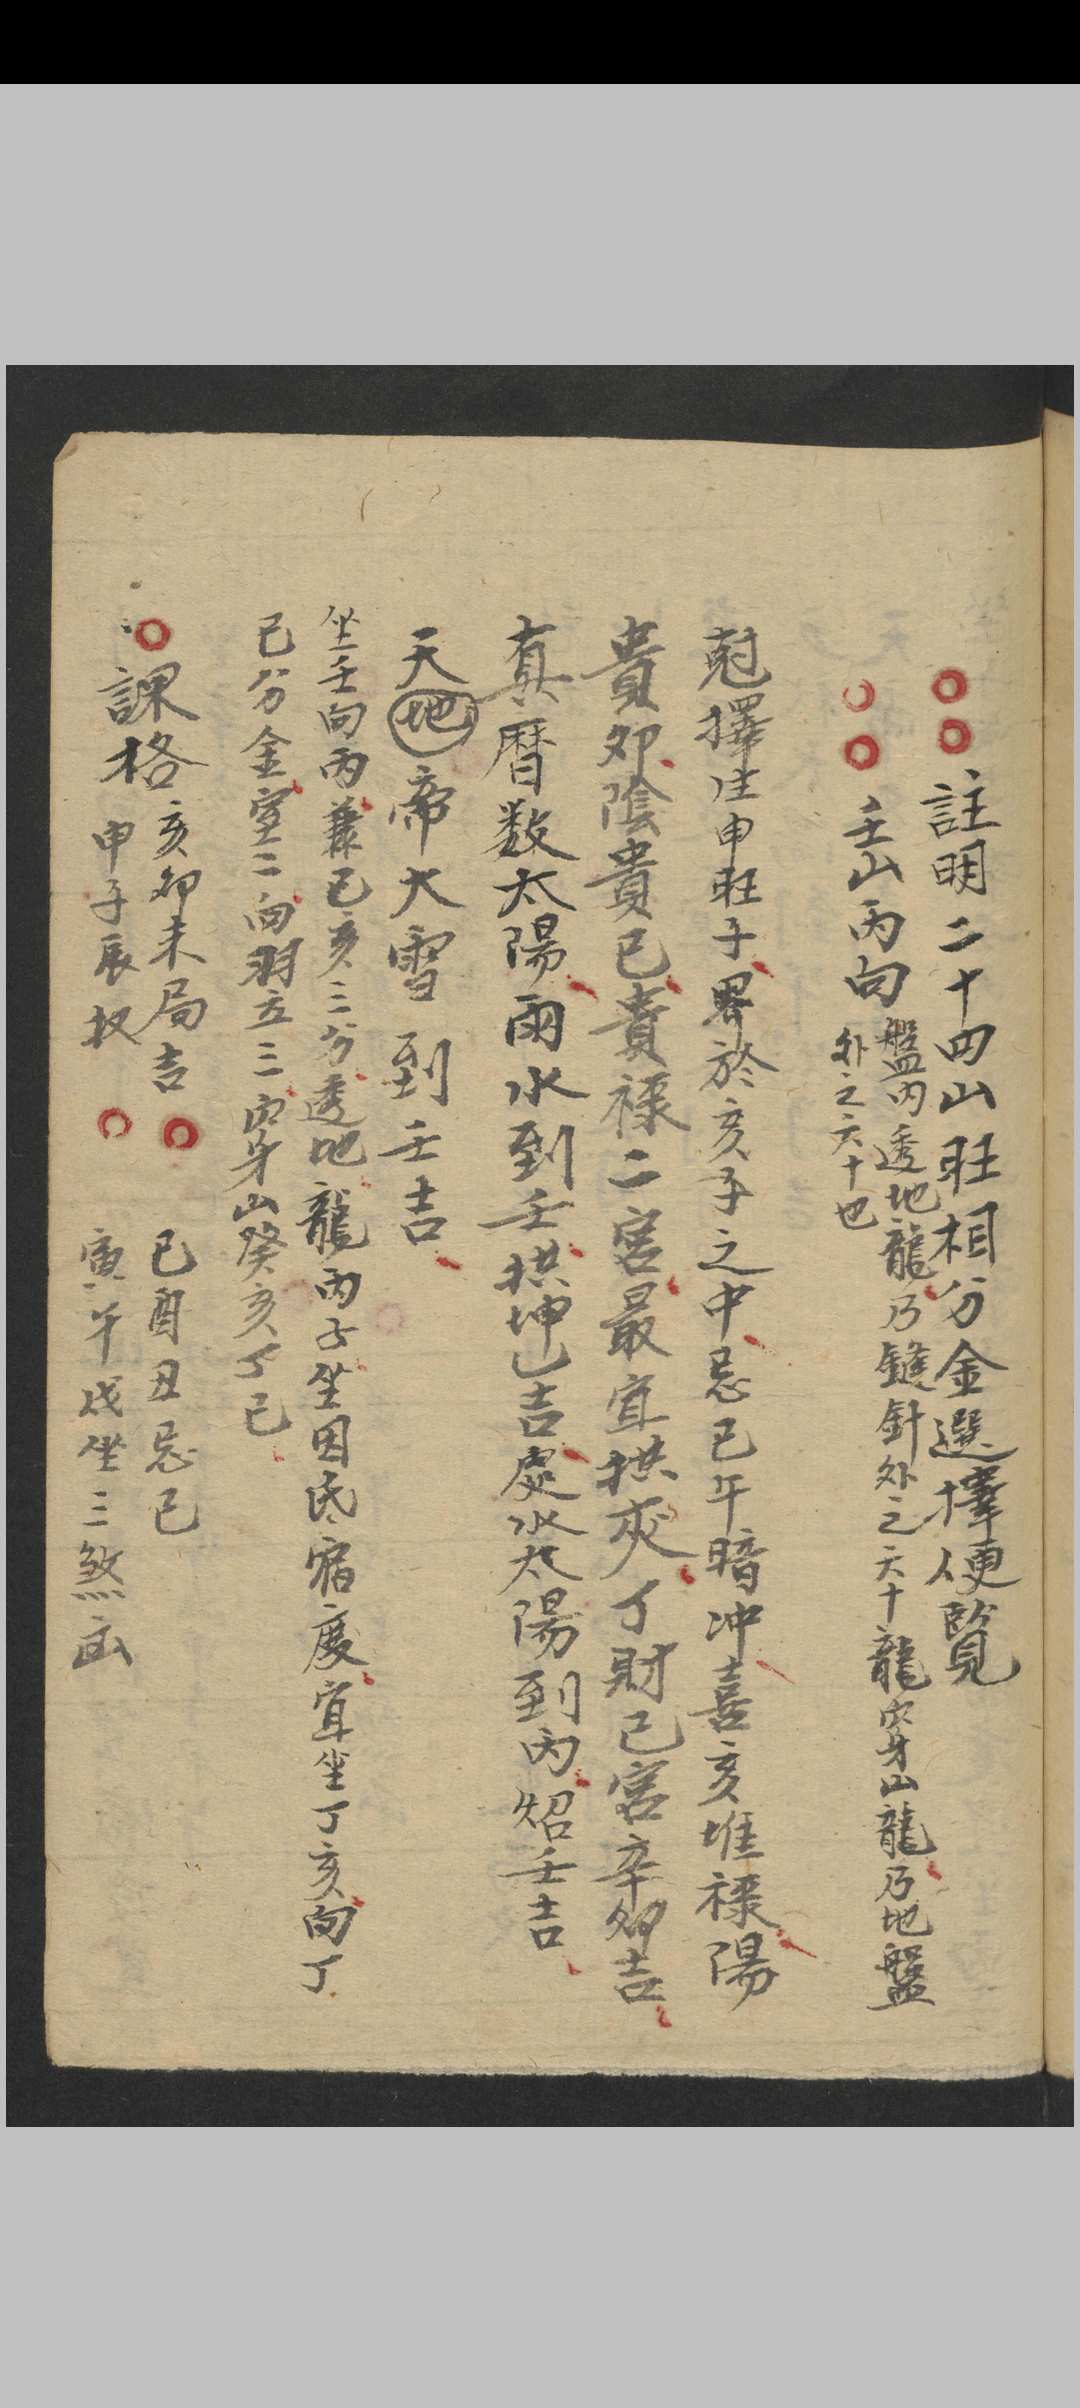 註明二十四山旺相分金選擇便覽
壬山丙向
盤內透地龍乃縫針外之六十龍穿山龍乃地盤
外之六十也
尅擇生申旺子界於亥子之中忌巳午暗冲喜亥堆祿陽
貴卯陰貴巳貴祿二宮最宜拱夾丁財巳宮辛卯吉
真曆数太陽雨水到壬拱坤乚吉處水太陽到丙炤壬吉
天地帝大雪到壬吉
坐壬向丙兼巳亥三分透地龍丙子坐因氐宿度宜坐丁亥向丁
巳分金室二向羽五三穿山癸亥丁巳
課格
亥卯未局吉
申子辰扠
巳酉丑忌巳
寅午戌坐三煞凶